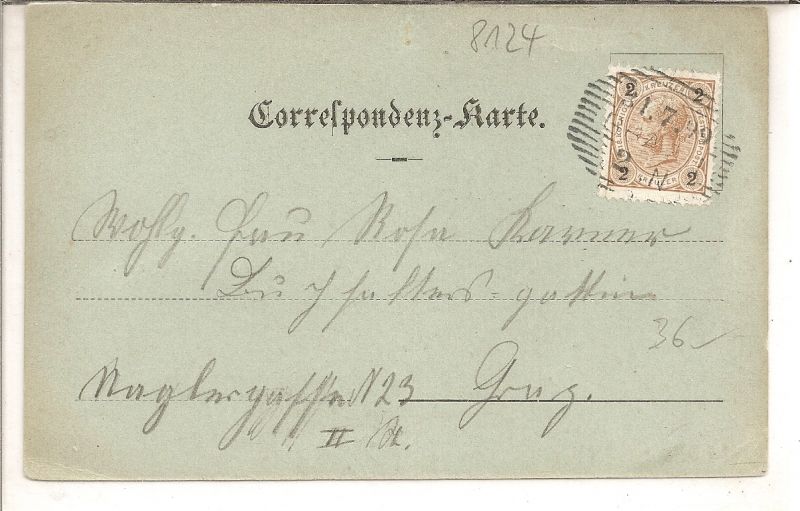 8124
Correspondenz-Karte.
2 KREUZER 2
1.7.99
2 KREUZER 2
Wohlg. Frau Rosa Karner
Buchhalters-gattin
36
Naglergasse N 23 Graz.
II St.